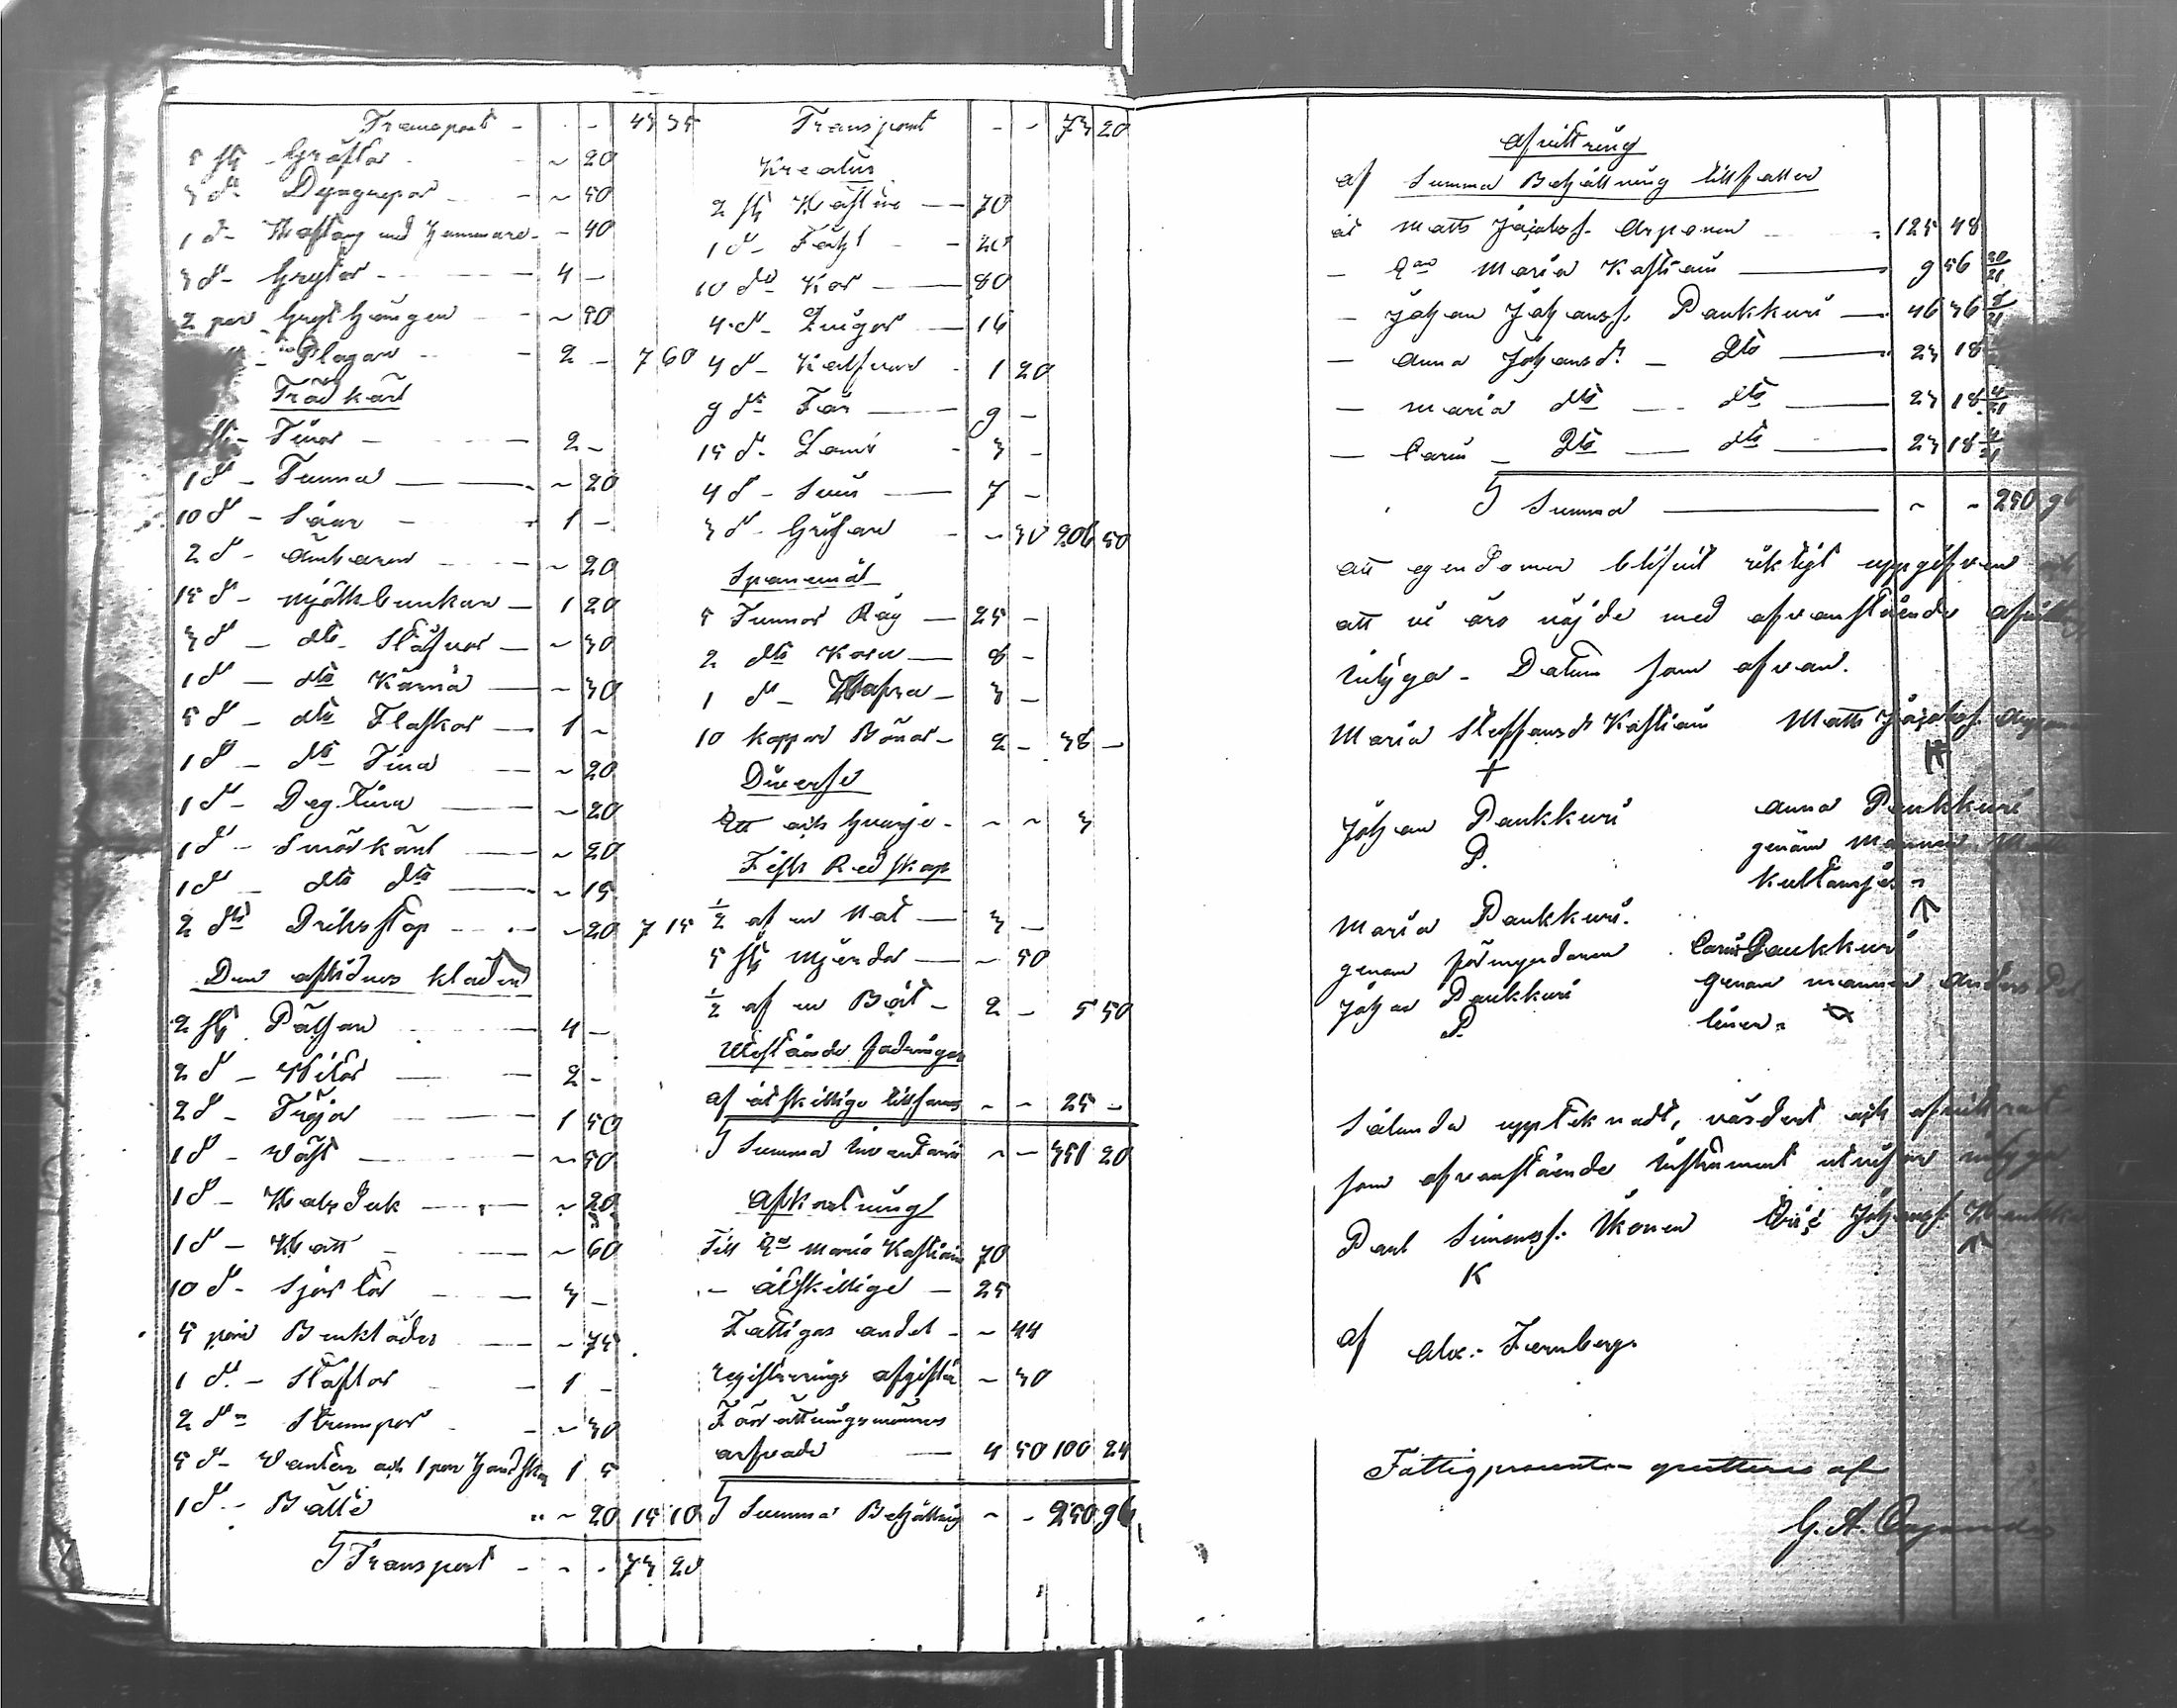 Transport - - - 43 35
5 st: Gräftor - ~ 20
3 d:o Dyngrepar - ~ 50
1 d:o Hastång med Hammare - - 40
3 d:o Grytor - 4 -
2 par Gryt Hängen - ~ 50
Plogar - 2 - 7 60
Trädkäril
Tinor - 2 -
1 d:o Tunna - ~ 20
10 d:o Såar - 1 -
2 d:o Ämbaren - ~ 20
15 d:o Mjölkbunkar - 1 20
3 d:o dito Stäfvor - ~ 30
1 d:o dito Kärna - ~ 30
5 d:o dito Flaskor - 1 ~
1 d:o dito Tina - ~ 20
1 d:o Deg Tina - ~ 20
1 d:o Smörkäril - ~ 20
1 d:o dito dito - ~ 15
2 dito Dricksstop - ~ 20 7 15
Den aflidnes kläder
2 st: Pälsar - 4 -
2 d:o - 2 -
2 d:o Tröjor - 1 50
1 d:o Väst - ~ 50
1 d:o Halsduk - ~ 20
1 d:o Hatt - ~ 60
10 d:o Sjortor - 3 -
5 par Benkläder - ~ 75
1 d:o Stöflor - 1 -
2 d:o Strumpor - ~ 30
5 d:o Vantar och 1 par Handskar 1 5
1 d:o Bälte - ~ 20 15 10
S Transport - - - 73 20
Transport - - 73 20
Kreatur
2 st: Hästar - 70
1 d:o Fåhl - 20
10 dito Kor - 80
4 d:o Qvigor - 16
4 d:o Kalfvar - 1 20
9 dito Får - 9 -
15 d:o Lam - 3 -
4 d:o Svin - 7 -
3 d:o Grisar - - 30 206 50
Spanemål
5 Tunnor Råg - 25 -
2 dito Korn - 8 -
1 d:o Hafra - 3 -
10 kappar Bönor - 2 - 38 -
Diverse
Ett och hvarje - ~ ~ 3
Fisk Redskap
1/2 af en Not - 3 -
5 st: Mjerdar - ~ 50
1/2 af en Båt - 2 - 5 50
Utestående fodringar
af åtskillige tillsamans - - 25 -
S Summa Inventarii ~ - 351 20
Afkortning
Till E:an Maria Kastiain 70
- åtskillige - 25
Fattigas andel - ~ 44
registrerings afgiften ~ 30
Förrättningsmännens
arfvode - 4 50 100 24
S Summa Behållning ~ - 250 96
Afvittring
af Summa Behållning tillfaller
åt Matts Jöjakss. Arponen - 125 48
- E:an Maria Kastiain - 9 56 20/21
- Johan Johanss. Paukkuri - 46 36 8/21
- Anna Johansd:r - Dito - 23 18
- Maria dito - dito - 23 18 4/21
- Carin - Dito - dito - 23 18 4/21
S Summa - ~ - 250 96
att egendomen blifvit riktigt uppgifven och
att vi äro nöjde med ofvanstående afvittring
intyga - Datum som ofvan.
Maria Steffansd:r Kastiain Matts Arponen
Johan Paukkuri Anna Paukkuri
P. genom Mannen
Maria Paukkuri.
genom förmyndaren Carin Paukkuri
Johan Paukkuri genom mannen Anders
P.
Sålunda upptecknadt, värderat och afvittrat
som ofvanstående Instrument utvisar intyga
Paul Simonss. Ikonen Johanss.
K
af Alex: Fernberg.
Fattigprocenten qvitteras af
G. A.